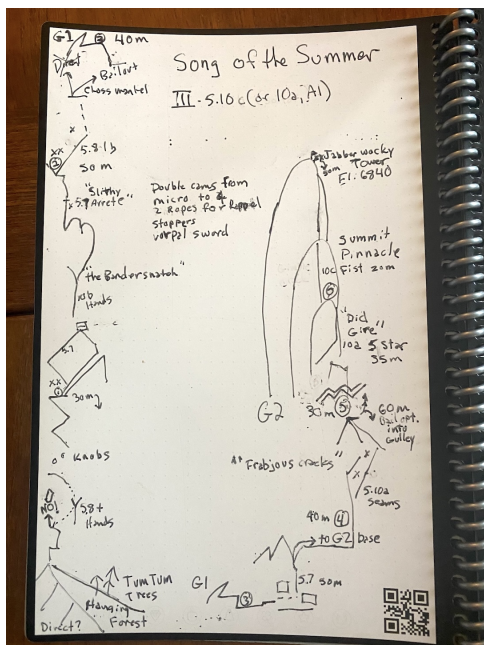 Song of the Summer
III - 5.10c (or 10a, A1)
G1
② 40m
Direct
Bailout
Choss mantel
x
xx
5.8
②
50m
"Slithy
Arrete"
Double cams from
micro to 4
2 Ropes for Rappel
stoppers
vorpal sword
"the Bandersnatch"
10b
Hands
5.7
xx
①
30m
Knobs
NO!
5.8+
Hands
Tum Tum
Trees
Hanging
Forest
Direct?
Jabberwocky
Tower
El. 6840
30m
Summit
Pinnacle
10c Fist 20m
⑥
"Did
Gire"
10a 5 Star
35m
G2
30m ⑤
60m
Bail opt.
into
Gulley
"Frabjous cracks"
x
x
5.10a
Seams
40m ④
to G2 base
G1
③
5.7 50m